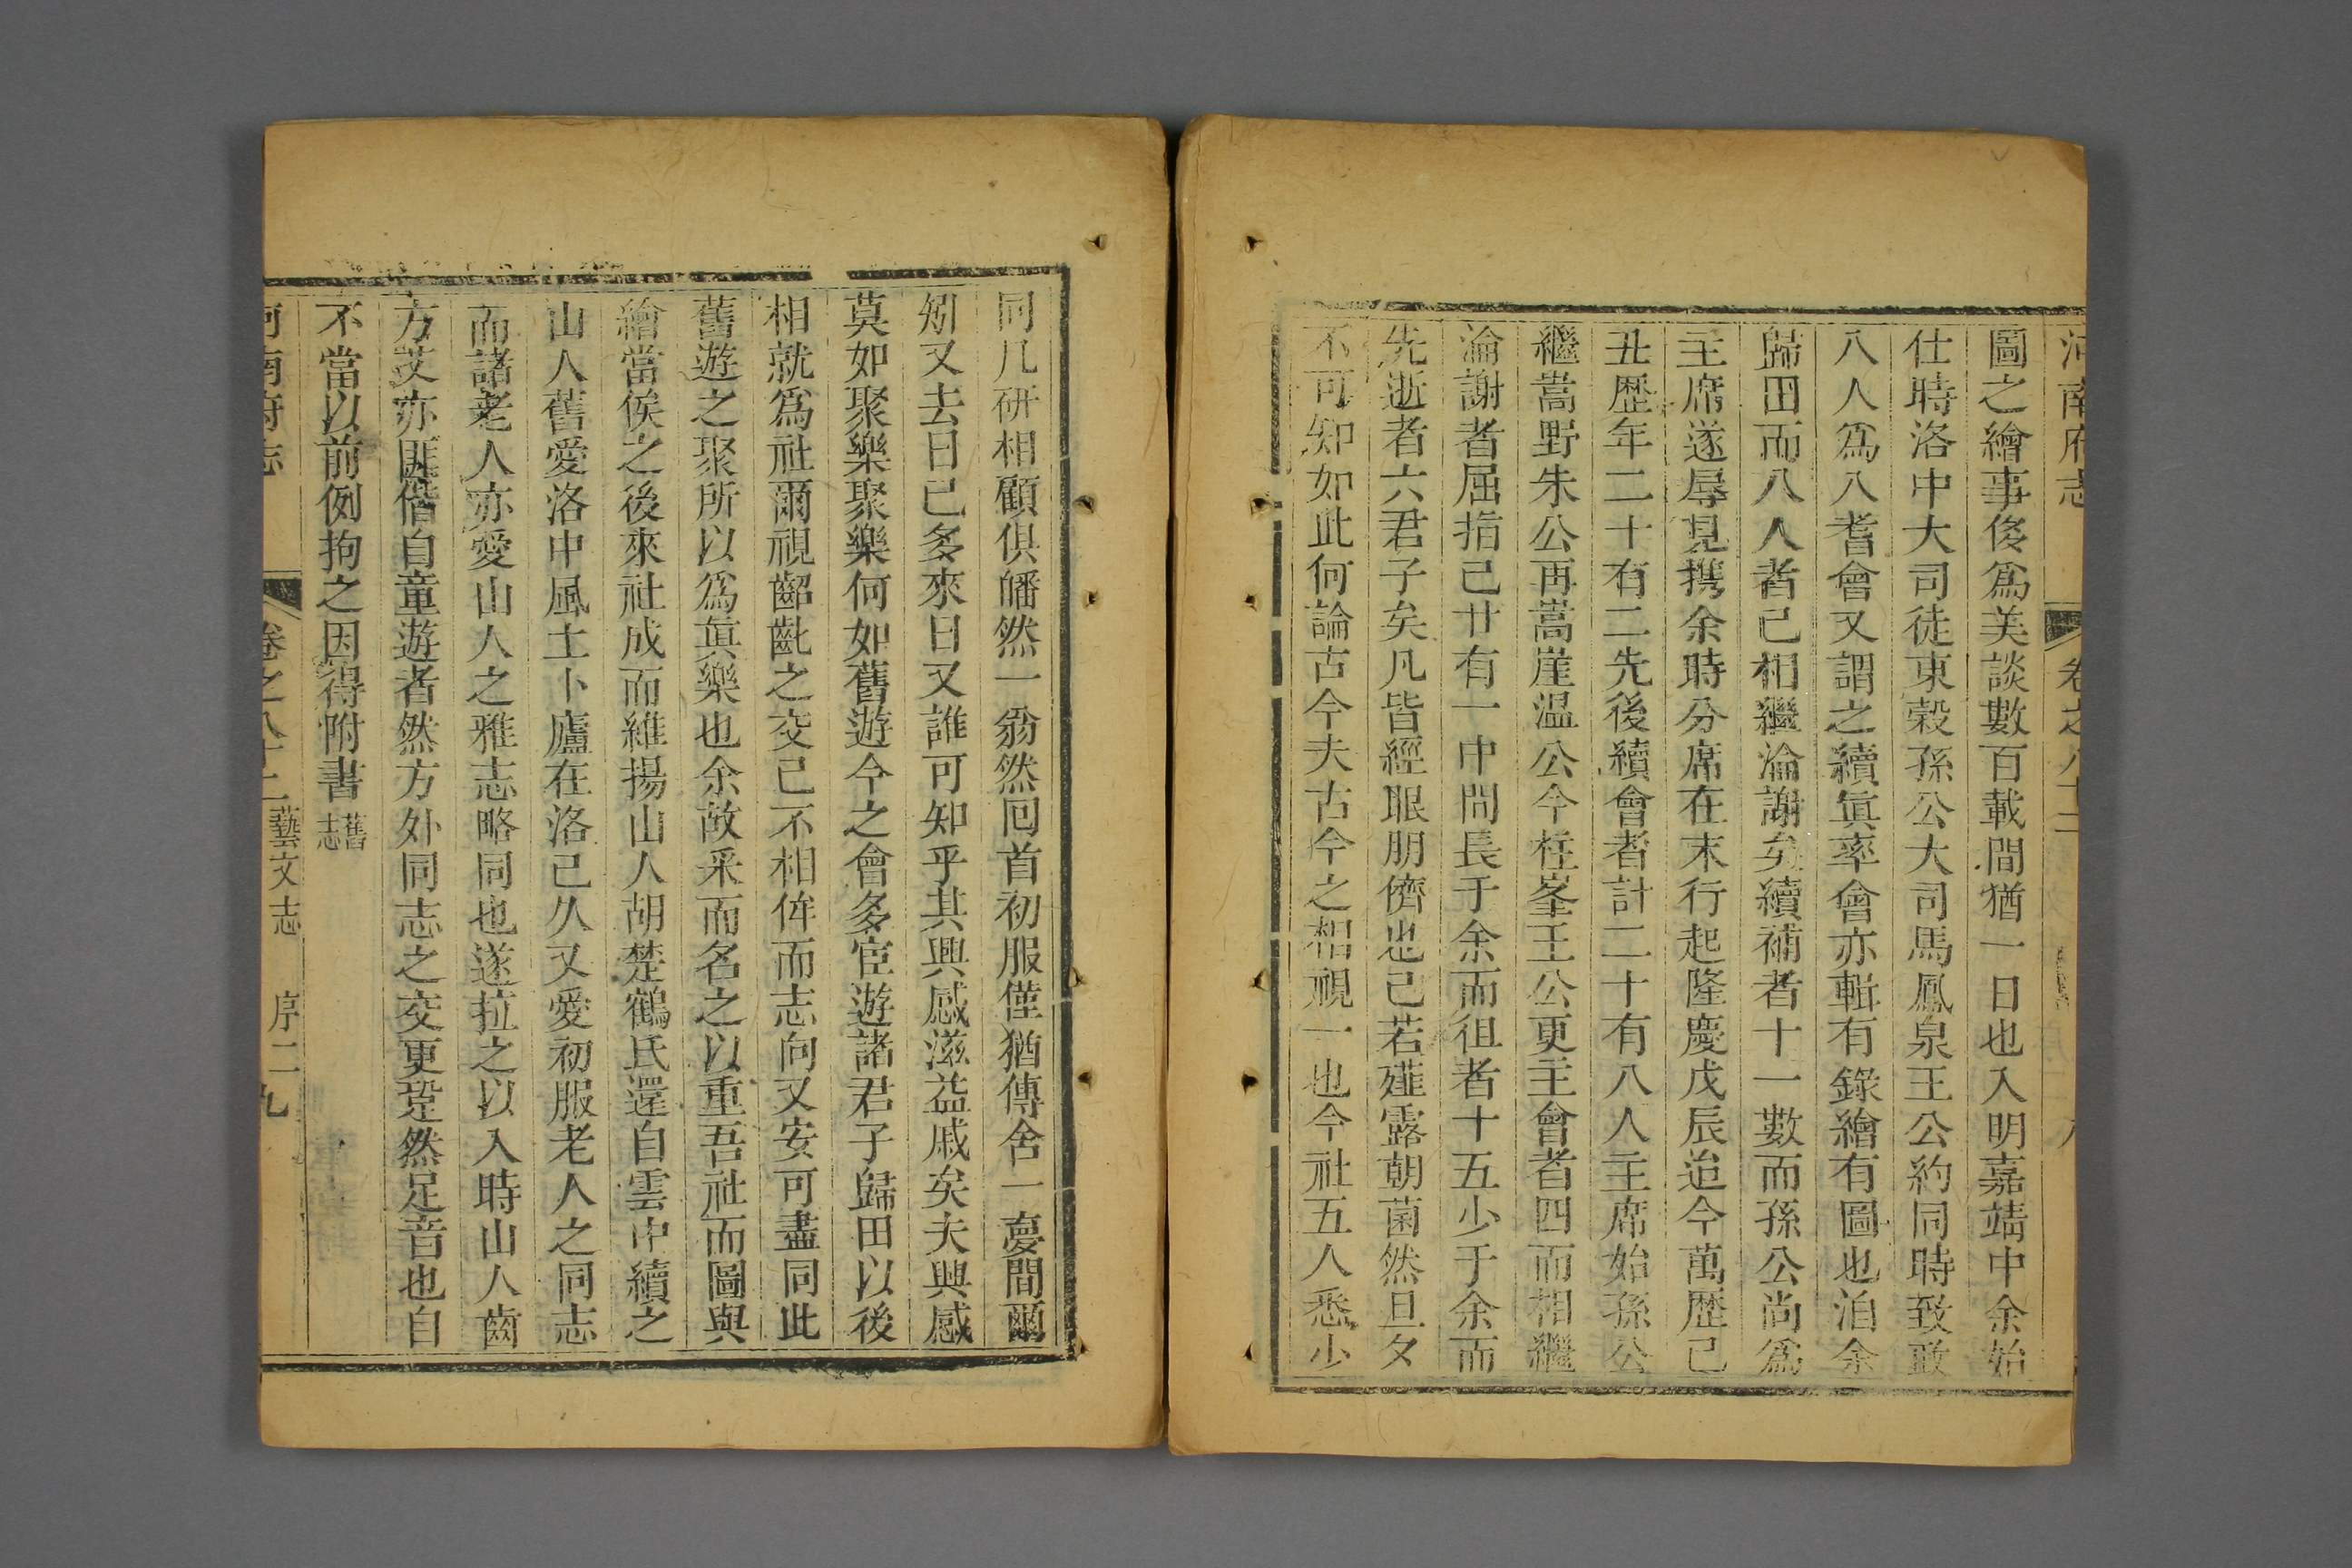 河南府志 卷之八十二
圖之繪事侈爲美談數百載間猶一日也入明嘉靖中余始
仕時洛中大司徒東穀孫公大司馬鳳泉王公約同時致政
八人爲八耆會又謂之續眞率會亦輯有錄繪有圖也洎余
歸田而八人者已相繼淪謝矣續補者十一數而孫公尚爲
主席遂辱見携余時分席在末行起隆慶戊辰迨今萬歴己
丑歴年二十有二先後續會者計二十有八人主席始孫公
繼嵩野朱公再嵩崖温公今柱峯王公更主會者四而相繼
淪謝者屈指已廿有一中間長于余而徂者十五少于余而
先逝者六君子矣凡皆經眼朋儕也已若薤露朝菌然旦夕
不可知如此何論古今夫古今之相視一也今社五人悉少
同几研相顧俱皤然一翁然囘首初服僅猶傳舍一夢間爾
矧又去日已多來日又誰可知乎其興感滋益戚矣夫興感
莫如聚樂聚樂何如舊遊今之會多宦遊諸君子歸田以後
相就爲社爾視齠齔之交已不相侔而志向又安可盡同此
舊遊之聚所以爲眞樂也余故采而名之以重吾社而圖與
繪當俟之後來社成而維揚山人胡楚鶴氏還自雲中續之
山人舊愛洛中風土卜廬在洛已久又愛初服老人之同志
而諸老人亦愛山人之雅志略同也遂拉之以入時山人齒
方艾亦匪偕自童遊者然方外同志之交更跫然足音也自
不當以前例拘之因得附書 舊志
河南府志 卷之八十二 藝文志 序二 九